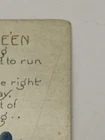 EEN
g
to run
e right
ay.
t of
g..